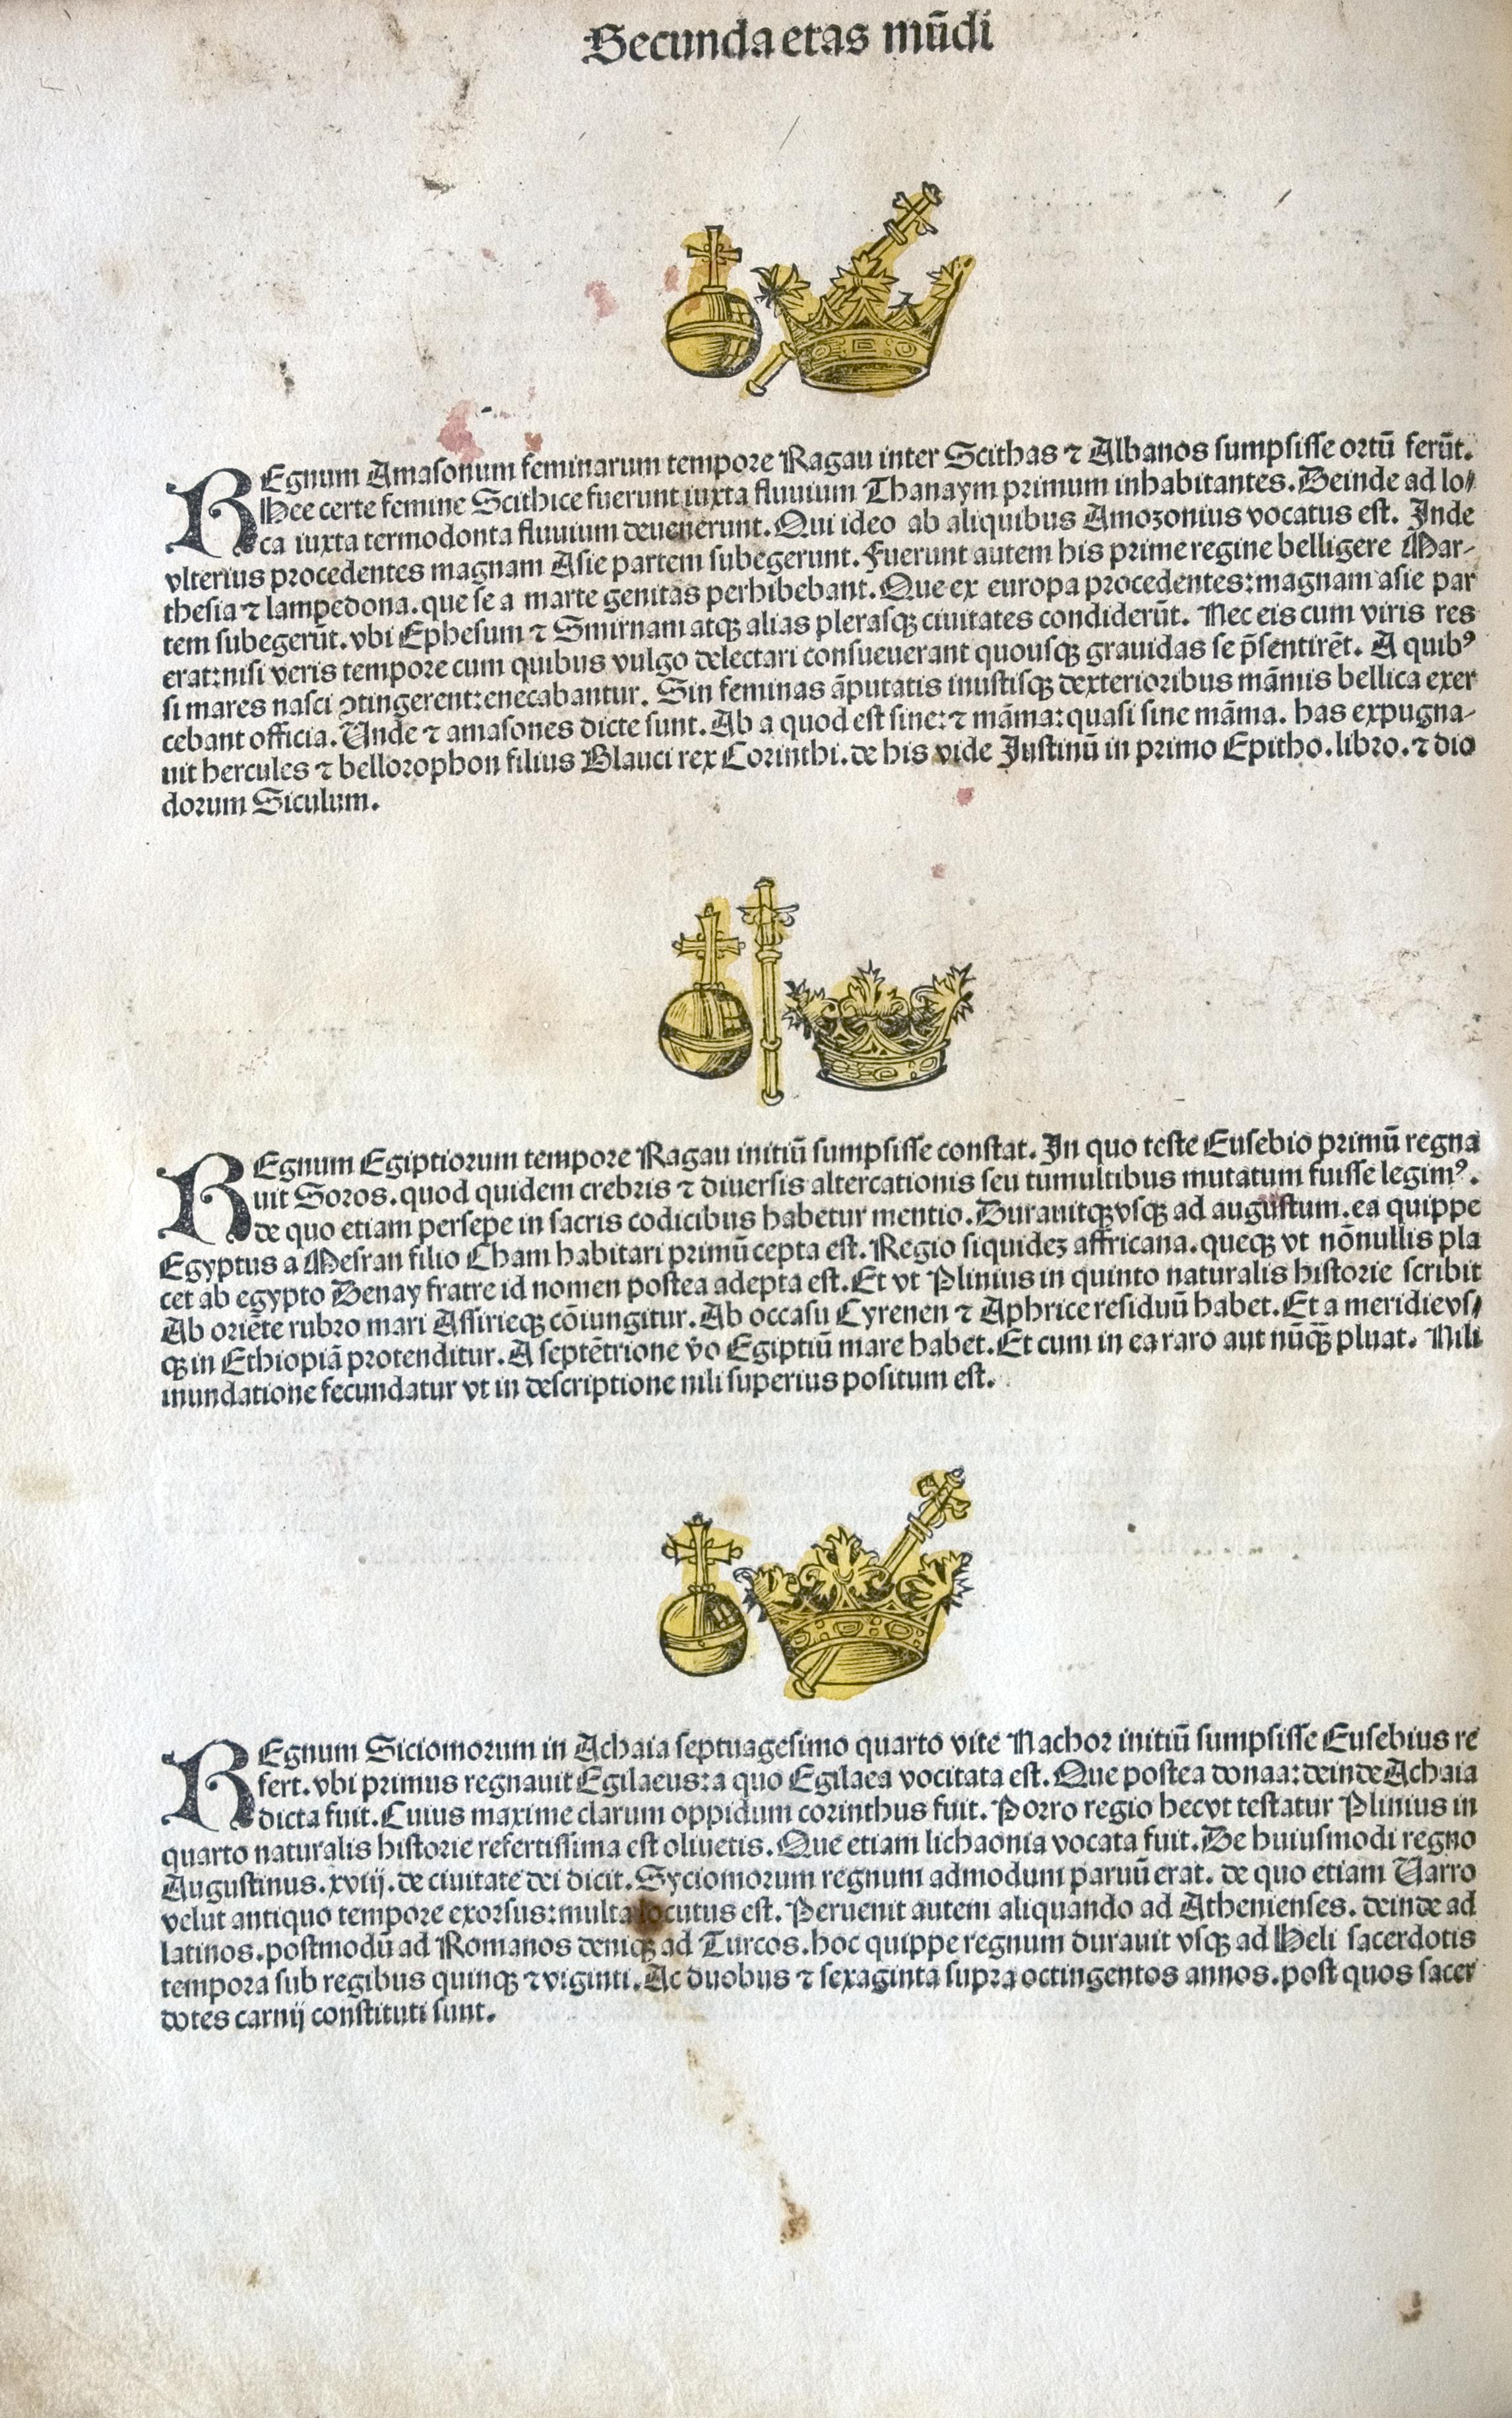 Secunda etas mūdi
REgnum Amasonum feminarum tempore Ragau inter Scithas ⁊ Albanos sumpsisse ortū ferūt.
Hee certe femine Scithice fuerunt iuxta fluuium Thanaym primum inhabitantes. Deinde ad lo⸗
ca iuxta termodonta fluuium deuenerunt. Qui ideo ab aliquibus Amozonius vocatus est. Inde
vlterius procedentes magnam Asie partem subegerunt. Fuerunt autem his prime regine belligere Mar⸗
thesia ⁊ lampedona. que se a marte genitas perhibebant. Que ex europa procedentes: magnam asie par
tem subegerūt. vbi Ephesum ⁊ Smirnam atqꝫ alias plerasqꝫ ciuitates condiderūt. Nec eis cum viris res
erat: nisi veris tempore cum quibus vulgo delectari consueuerant quousqꝫ grauidas se p̄sentirēt. A quibꝰ
si mares nasci ꝯtingerent: enecabantur. Sin feminas āputatis inustisqꝫ dexterioribus māmis bellica exer
cebant officia. Unde ⁊ amasones dicte sunt. Ab a quod est sine: ⁊ māma: quasi sine māma. has expugna⸗
uit hercules ⁊ bellorophon filius Glauci rex Corinthi. de his vide Justinū in primo Epitho. libro. ⁊ dio
dorum Siculum.
REgnum Egiptiorum tempore Ragau initiū sumpsisse constat. In quo teste Eusebio primū regna
uit Soros. quod quidem crebris ⁊ diuersis altercationis seu tumultibus mutatum fuisse legimꝰ.
de quo etiam persepe in sacris codicibus habetur mentio. Durauitqꝫ vsqꝫ ad augustum. ea quippe
Egyptus a Mesran filio Cham habitari primū cepta est. Regio siquideꝫ affricana. queqꝫ vt nōnullis pla
cet ab egypto Denay fratre id nomen postea adepta est. Et vt Plinius in quinto naturalis historie scribit
Ab oriēte rubro mari Assirieqꝫ cōiungitur. Ab occasu Cyrenen ⁊ Aphrice residuū habet. Et a meridie vs⸗
qꝫ in Ethiopiā protenditur. A septētrione v̄o Egiptiū mare habet. Et cum in ea raro aut nūqꝫ̄ pluat. Nili
inundatione fecundatur vt in descriptione nili superius positum est.
REgnum Siciomorum in Achaia septuagesimo quarto vite Nachor initiū sumpsisse Eusebius re
fert. vbi primus regnauit Egilaeus: a quo Egilaea vocitata est. Que postea donaa: deinde Achaia
dicta fuit. Cuius maxime clarum oppidum corinthus fuit. Porro regio hec vt testatur Plinius in
quarto naturalis historie refertissima est oliuetis. Que etiam lichaonia vocata fuit. De huiusmodi regno
Augustinus. xviij. de ciuitate dei dicit. Syciomorum regnum admodum paruū erat. de quo etiam Varro
velut antiquo tempore exorsus: multa locutus est. Peruenit autem aliquando ad Athenienses. deinde ad
latinos. postmodū ad Romanos deniqꝫ ad Turcos. hoc quippe regnum durauit vsqꝫ ad Heli sacerdotis
tempora sub regibus quinqꝫ ⁊ viginti. Ac duobus ⁊ sexaginta supra octingentos annos. post quos sacer
dotes carnij constituti sunt.